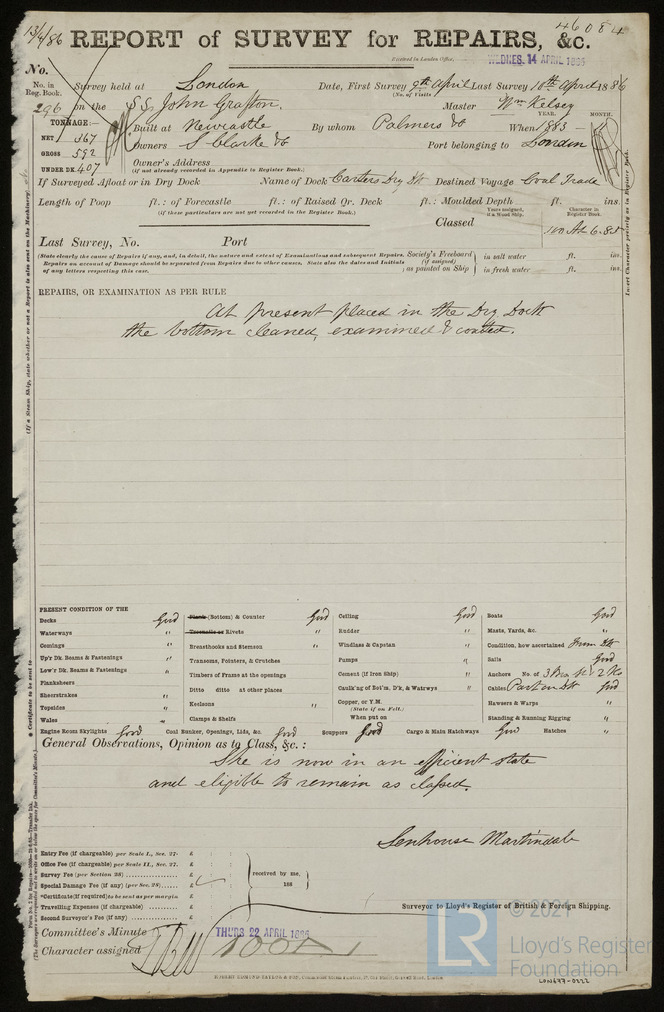 13/4/86
46084
REPORT of SURVEY for REPAIRS, &c.
Received in London Office,
WEDNES. 14 APRIL 1886
No.
No. in Reg. Book.
296
Survey held at London Date, First Survey 9th April Last Survey 10th April 1886
(No. of Visits
on the SS. John Grafton. Master Wm Kelsey
TONNAGE:—
NET 367
GROSS 592
UNDER DK. 407
YEAR. MONTH.
Built at Newcastle By whom Palmers & Co When 1883
Owners S Clarke & Co Port belonging to London
Owner's Address
(if not already recorded in Appendix to Register Book.)
If Surveyed Afloat or in Dry Dock Name of Dock Carters Dry Dk Destined Voyage Coal Trade
Length of Poop ft.: of Forecastle ft.: of Raised Qr. Deck ft.: Moulded Depth ft. ins.
(if these particulars are not yet recorded in the Register Book.)
Classed
Years assigned, if a Wood Ship.
Character in Register Book.
100 A1 6.85
Last Survey, No. Port
(State clearly the cause of Repairs if any, and, in detail, the nature and extent of Examinations and subsequent Repairs.
Repairs on account of Damage should be separated from Repairs due to other causes. State also the dates and Initials
of any letters respecting this case.
Society's Freeboard (if assigned) as painted on Ship
in salt water ft. ins.
in fresh water ft. ins.
REPAIRS, OR EXAMINATION AS PER RULE
At present placed in the Dry Dock
the bottom cleaned, examined & coated.
PRESENT CONDITION OF THE
Decks Good
Waterways "
Comings "
Up'r Dk. Beams & Fastenings "
Low'r Dk. Beams & Fastenings "
Planksheers
Sheerstrakes "
Topsides "
Wales "
Plank (Bottom) & Counter Good
Treenails or Rivets "
Breasthooks and Stemson "
Transoms, Pointers, & Crutches
Timbers of Frame at the openings
Ditto ditto at other places
Keelsons "
Clamps & Shelfs
Ceiling Good
Rudder "
Windlass & Capstan "
Pumps "
Cement (if Iron Ship) "
Caulk'ng of Bot'm, D'k, & Waterwys "
Copper, or Y.M.
(State if on Felt.)
When put on
Boats Good
Masts, Yards, &c. "
Condition, how ascertained From Dk
Sails Good
Anchors No. of 3
Cables Part on Dk Good
Hawsers & Warps "
Standing & Running Rigging "
Engine Room Skylights Good Coal Bunker, Openings, Lids, &c. Good Scuppers Good Cargo & Main Hatchways Good Hatches "
General Observations, Opinion as to Class, &c.:
She is now in an efficient state
and eligible to remain as classed.
Senhouse Martindale
Entry Fee (if chargeable) per Scale I., Sec. 27. £ : :
Office Fee (if chargeable) per Scale II., Sec. 27. £ : :
Survey Fee (per Section 28) £ : :
Special Damage Fee (if any) (per Sec. 28) £ : :
*Certificate (if required) to be sent as per margin £ : :
Travelling Expenses (if chargeable) £ : :
Second Surveyor's Fee (if any) £ : :
received by me,
188
Surveyor to Lloyd's Register of British & Foreign Shipping.
Committee's Minute THURS 22 APRIL 1886
Character assigned 100A1
LR
© 2021
Lloyd's Register
Foundation
LON477-0222